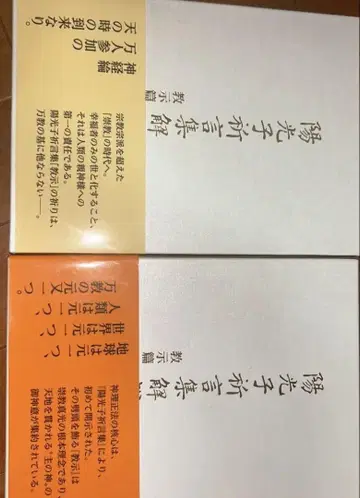 陽光子祈言集解
教示篇
神経綸
万人参加の
天の時の到来なり。
宗教宗派を超えた
「崇教」の時代へ。
幸福者のみの世と化すること、
それは人類の親神様への
第一の責任である。
陽光子祈言集『教示』の祈りは、
万教の基に他ならない──。
陽光子祈言集解
教示篇
地球は元一つ、
世界は元一つ、
人類は元一つ、
万教の元又一つ。
神理正法の核心は、
『陽光子祈言集』により、
初めて開示された。
その劈頭を飾る『教示』は
崇教真光の根本理念であり、
天地を貫かれる“主の神”の
御神意が集約されている。